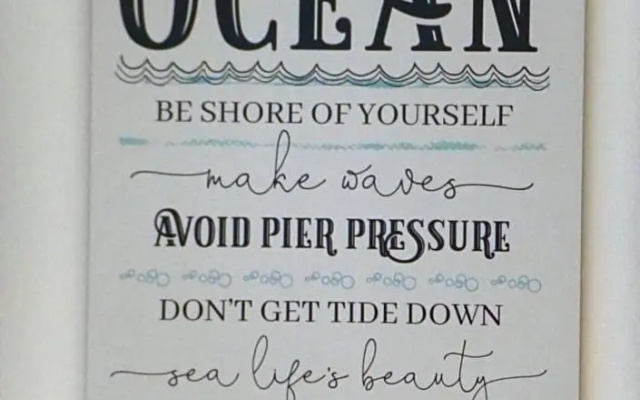 OCEAN
BE SHORE OF YOURSELF
make waves
AVOID PIER PRESSURE
DON'T GET TIDE DOWN
sea life's beauty